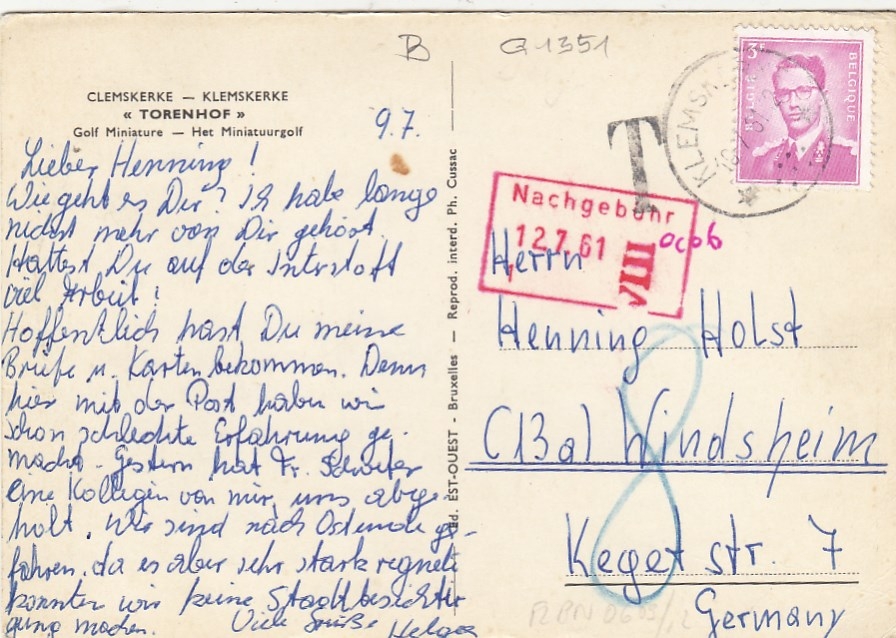 B
G 1351
CLEMSKERKE — KLEMSKERKE
« TORENHOF »
Golf Miniature — Het Miniatuurgolf
9.7.
Lieber Henning!
Wie geht es Dir? Ich habe lange
nichts mehr von Dir gehört.
Hattest Du auf der Interstoff
viel Arbeit?
Hoffentlich hast Du meine
Briefe u. Karten bekommen. Denn
hier mit der Post haben wir
schon schlechte Erfahrung ge-
macht. Gestern hat Fr.
eine Kollegin von mir, uns abge-
holt. Wir sind nach Ostende ge-
fahren. da es aber sehr stark regnete
konnten wir keine Stadtbesichti-
gung machen. Viele Grüße Helga
Ed. EST-OUEST - Bruxelles — Reprod. interd. Ph. Cussac
3F
BELGIË
BELGIQUE
KLEMSKERKE
T
Nachgebühr
12.7.61
VIII
Herrn
Henning Holst
(13a) Windsheim
Keget str. 7
Germany
8